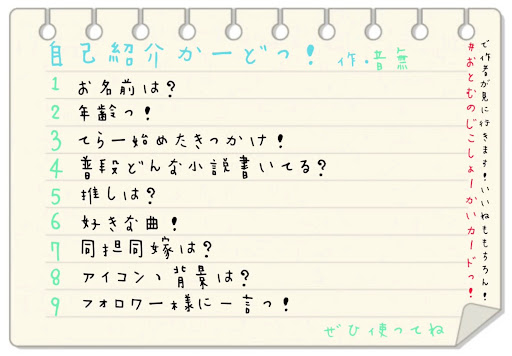 自己紹介かーどっ!
作・音無
1 お名前は?
2 年齢っ!
3 てらー始めたきっかけ!
4 普段どんな小説書いてる?
5 推しは?
6 好きな曲!
7 同担同嫁は?
8 アイコン、背景は?
9 フォロワー様に一言っ!
ぜひ使ってね
#おとむのじこしょーかいカードっ!
で作者が見に行きます!いいねももちろん!